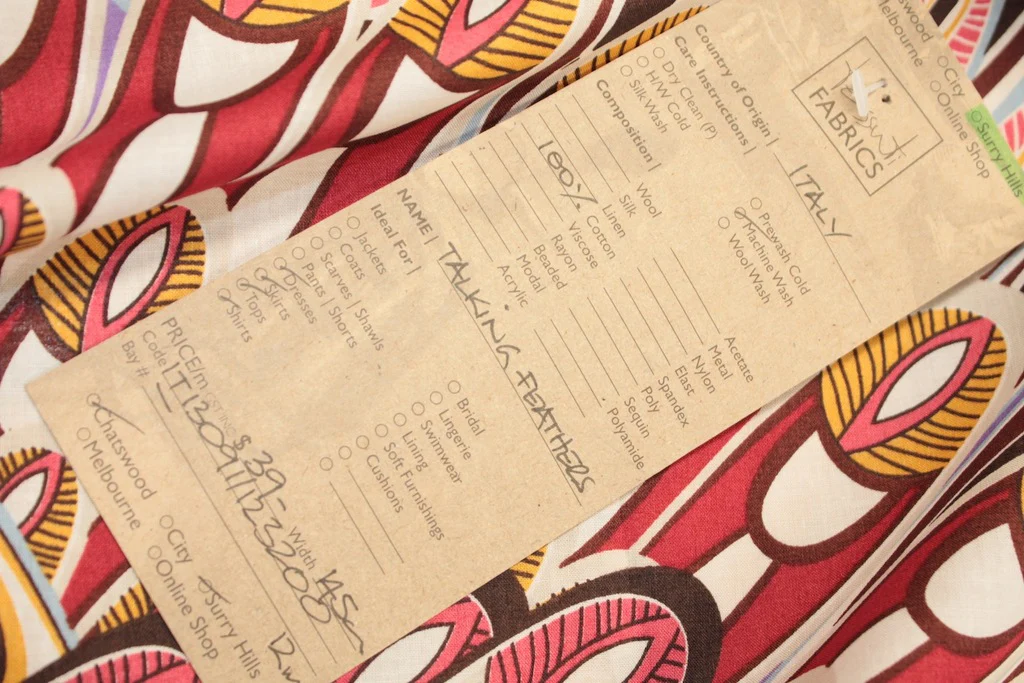 Chatswood
Melbourne
City
Online Shop
Surry Hills
FABRICS
Country of Origin | ITALY
Care Instructions |
Dry Clean (P)
H/W Cold
Silk Wash
Prewash Cold
Machine Wash
Wool Wash
Composition |
Wool
Silk
Linen
100% Cotton
Viscose
Rayon
Beaded
Modal
Acrylic
Acetate
Metal
Nylon
Elast
Spandex
Poly
Sequin
Polyamide
NAME | TALKING FEATHERS
Ideal For |
Jackets
Coats
Scarves | Shawls
Pants | Shorts
Dresses
Skirts
Tops
Shirts
Bridal
Lingerie
Swimwear
Lining
Soft Furnishings
Cushions
PRICE/m $39- Width 145
Code
Bay #
Chatswood
Melbourne
City
Online Shop
Surry Hills